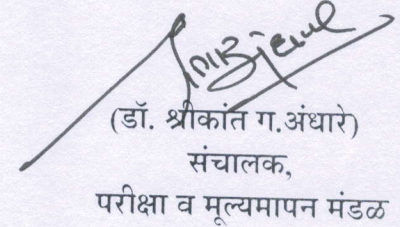 (डॉ. श्रीकांत ग.अंधारे)
संचालक,
परीक्षा व मूल्यमापन मंडळ